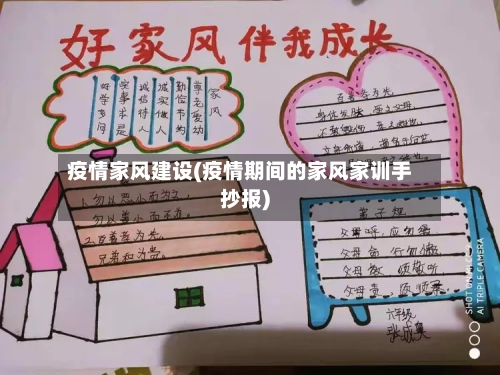 好家风伴我成长
家风
尊老爱幼
勤俭节约
诚实做人
诚信待人
实事求是
好学多问
百善孝为先
身体发肤，受之父母
疫情家风建设(疫情期间的家风家训手
抄报)
1.勿以恶小而为之，
勿以善小而不为。
2.百善孝为先，
兄弟和为贵。
弟子规
父母呼，应勿缓
父母命，行勿懒
父母教，须敬听
父母责，须顺承
六年级
SHOT ON MI 9
AI TRIPLE CAMERA